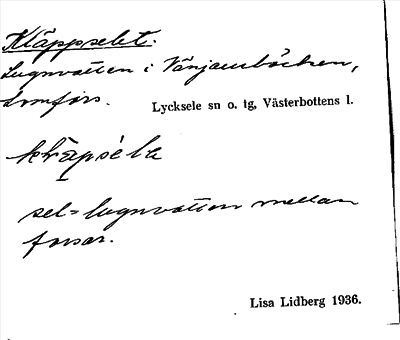 Kläppselet.
Lugnvatten i Vänjaurbäcken,
Örnfors. Lycksele sn o. tg, Västerbottens l.
kḷäpséla
sel = lugnvatten mellan
forsar.
Lisa Lidberg 1936.